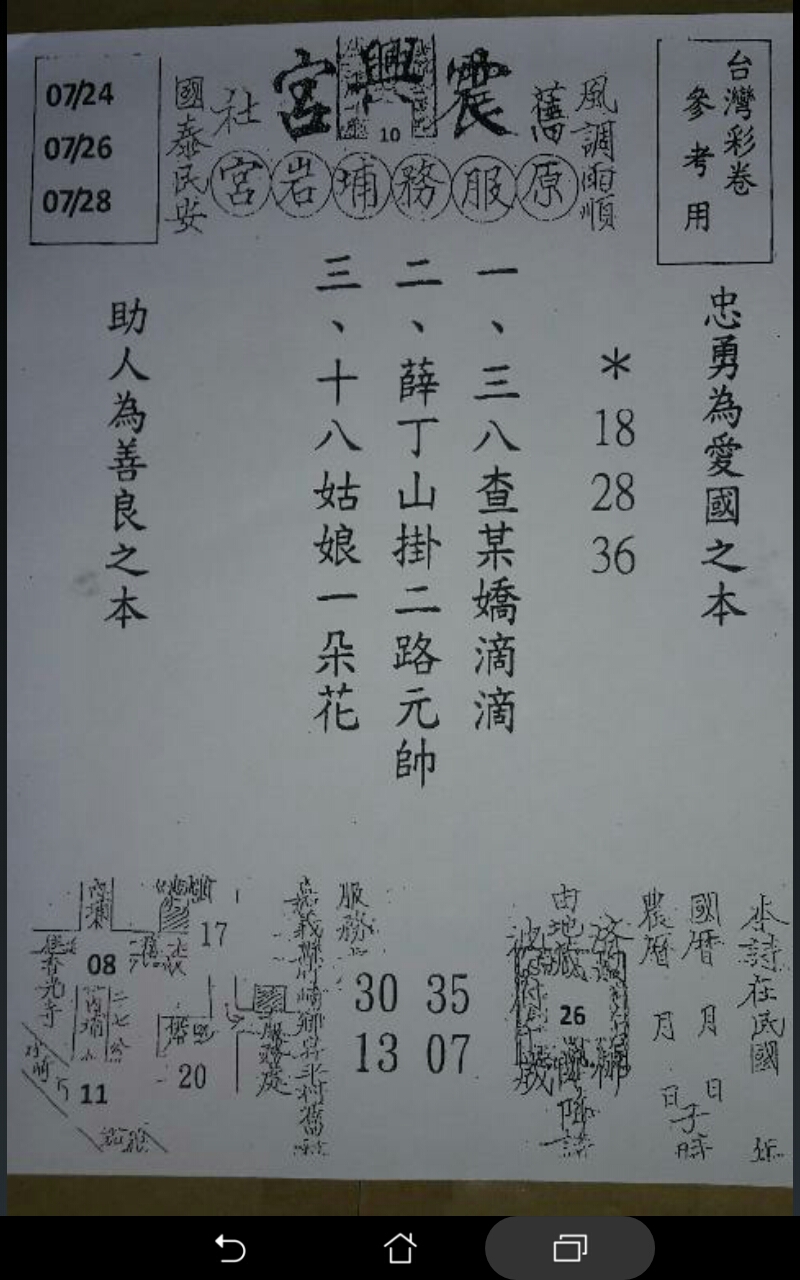 台灣彩卷
參考用
風調雨順
舊
震興宮
10
社
國泰民安
原服務埔岩宮
07/24
07/26
07/28
忠勇為愛國之本
＊
18
28
36
一、三八查某嬌滴滴
二、薛丁山掛二路元帥
三、十八姑娘一朵花
助人為善良之本
本詩在民國
國曆 月 日
農曆 月 日子時
由地藏
26
降詩
服務
30 35
13 07
服務處
17
08
20
11